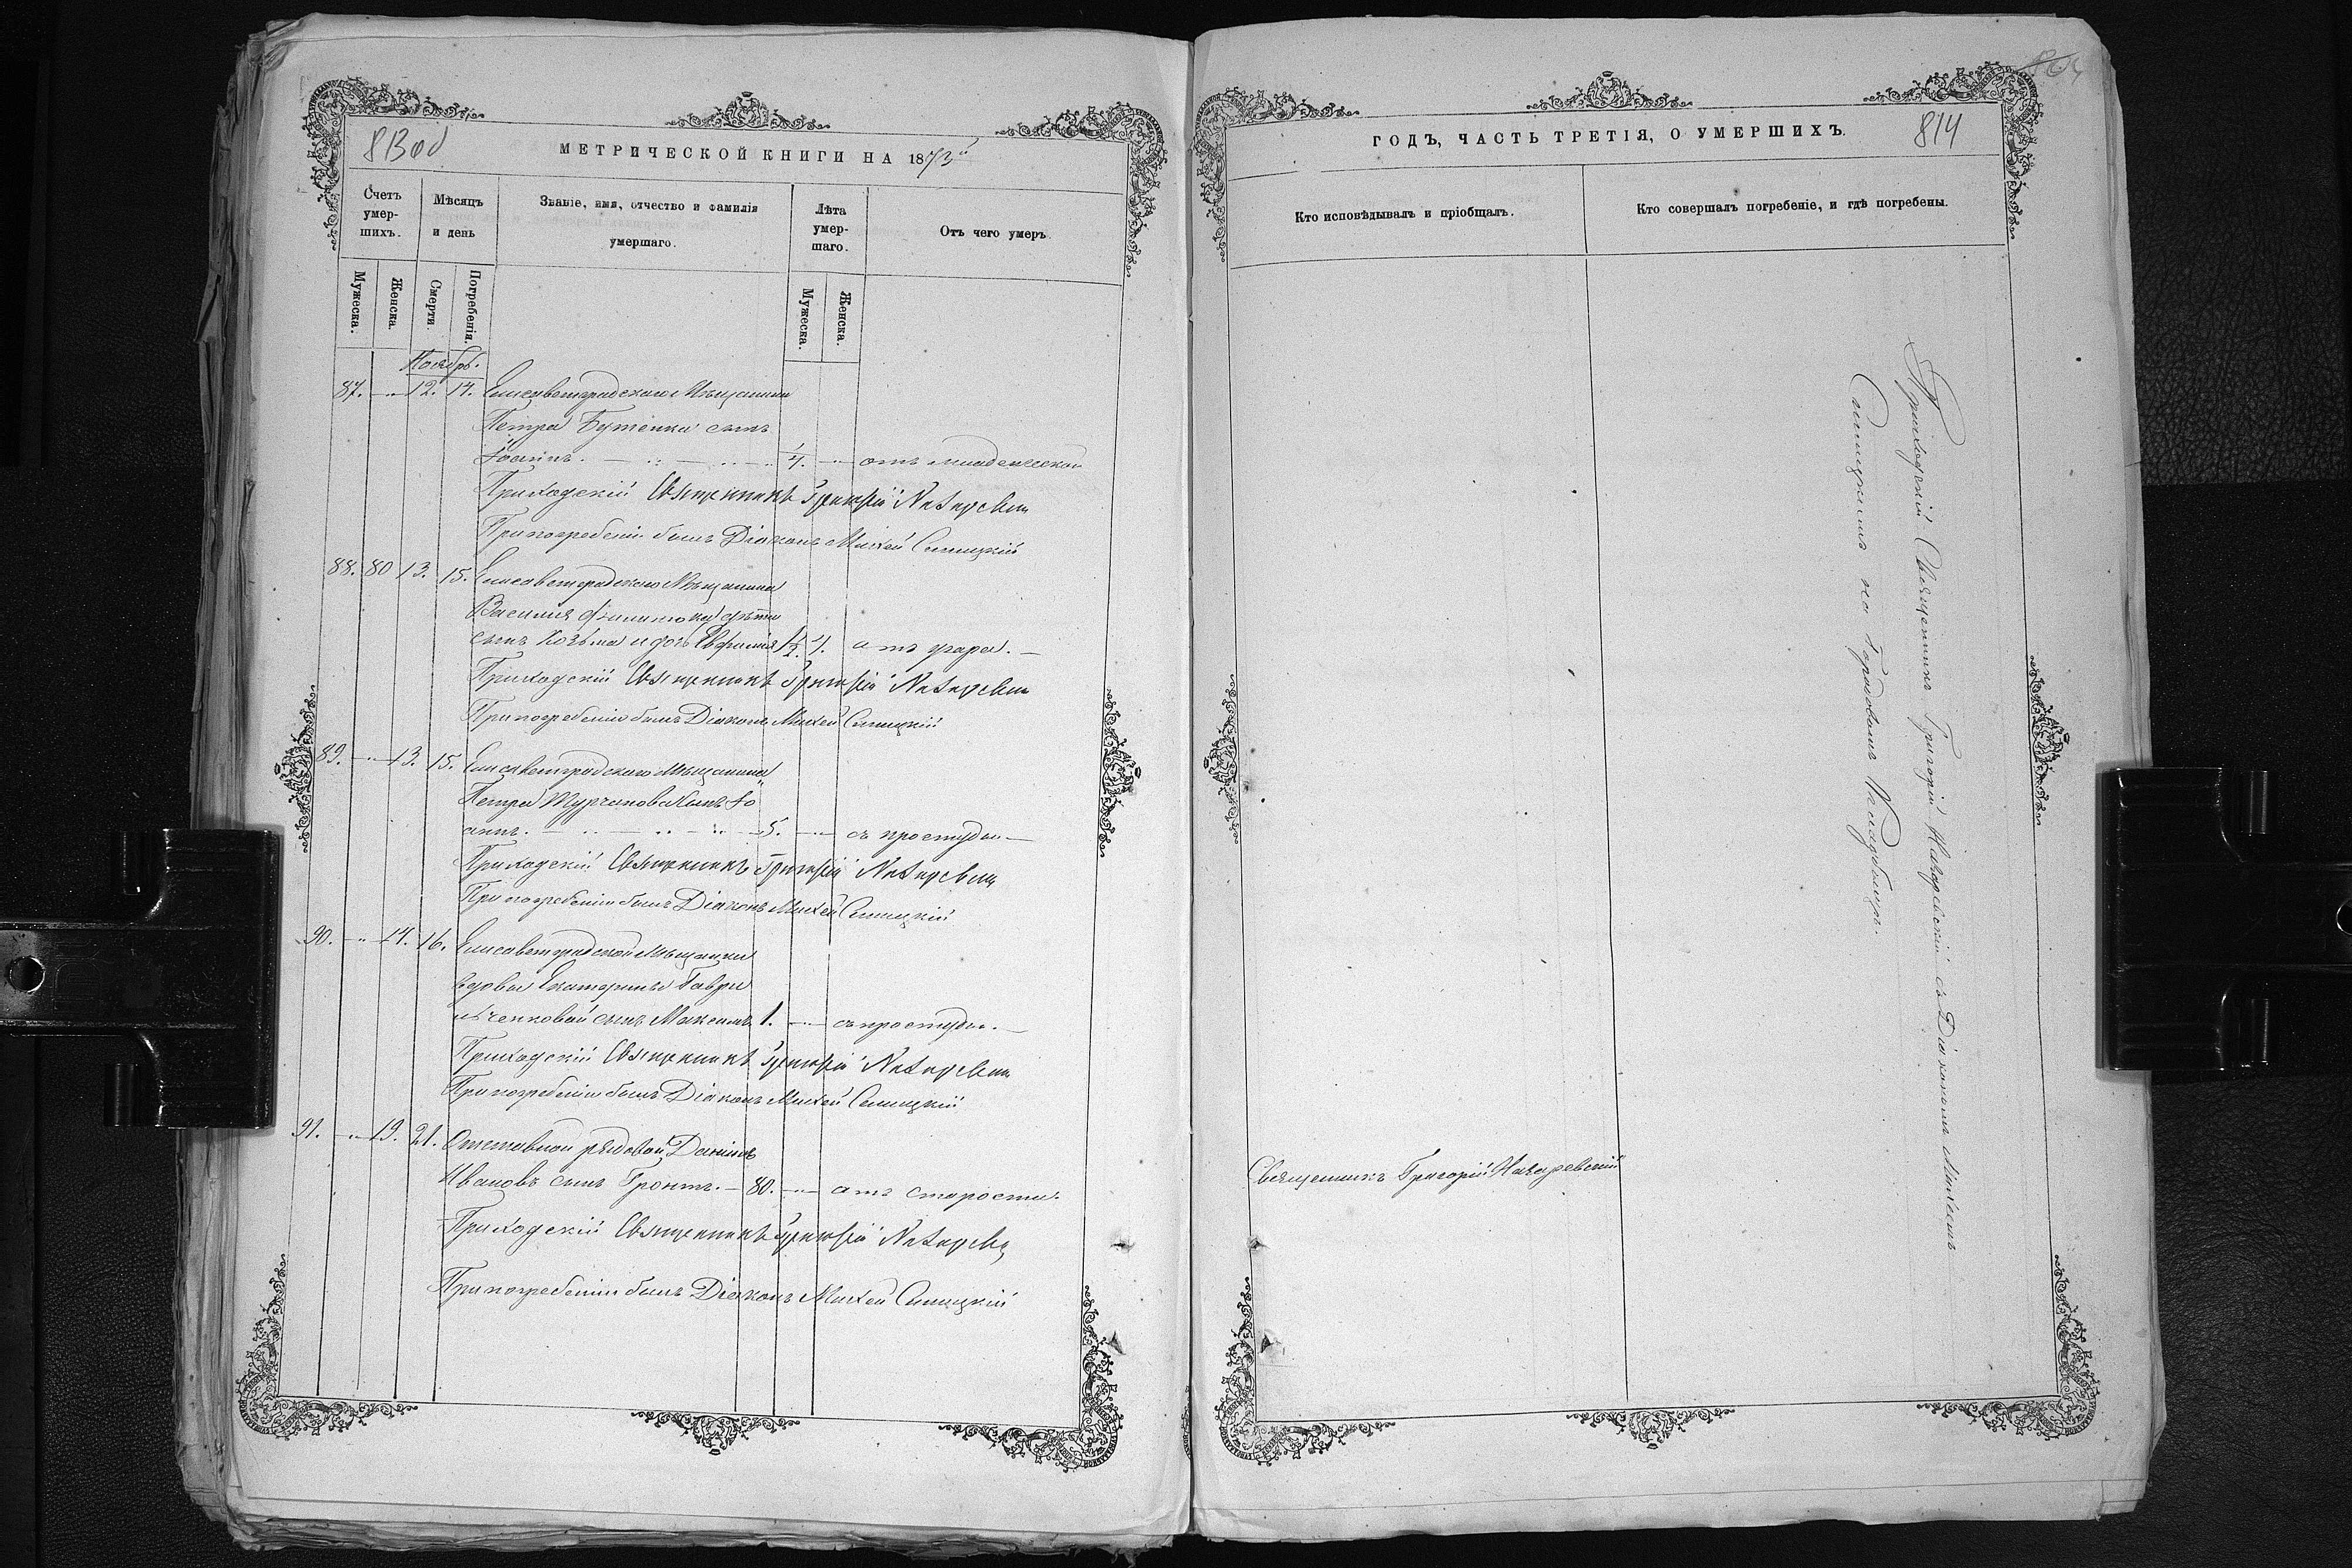 813об
МЕТРИЧЕСКОЙ КНИГИ НА 1873й
Счетъ умер-шихъ.
Мѣсяцъ и день
Званіе, имя, отчество и фамилія умершаго.
Лѣта умер-шаго.
Отъ чего умеръ
Мужеска.
Женска.
Смерти.
Погребенія.
Мужеска.
Женска.
Ноябрь.
87. — 12. 14. Елисаветградскаго Мѣщанина
Петра Бутенка сынъ
Іоаннъ. — отъ младенческой
Приходскій Священникъ Григорій Назаревскій
При погребеніи былъ Діаконъ Михей Синицкій
88. 80 13. 15. Елисаветградскаго Мѣщанина
Василія дѣти
сынъ Козьма и дочь Евфимія 1/2. 4. отъ удара. —
Приходскій Священникъ Григорій Назаревскій
При погребеніи былъ Діаконъ Михей Синицкій
89. — 13. 15. Елисаветградскаго Мѣщанина
Петра Турчанова сынъ Іо
аннъ. — 5. — съ простуды —
Приходскій Священникъ Григорій Назаревскій
При погребеніи былъ Діаконъ Михей Синицкій
90. — 14. 16. Елисаветградской Мѣщанки
вдовы Екатерины Гаври
льченковой сынъ Максимъ 1. — съ простуды. —
Приходскій Священникъ Григорій Назаревскій
При погребеніи былъ Діаконъ Михей Синицкій
91. — 19. 21. Отставной рядовой Даніилъ
Ивановъ сынъ Гронтъ. — 80. — отъ старости.
Приходскій Священникъ Григорій Назаревск
При погребеніи былъ Діаконъ Михей Синицкій
ГОДЪ, ЧАСТЬ ТРЕТІЯ, О УМЕРШИХЪ.
814
Кто исповѣдывалъ и пріобщалъ.
Кто совершалъ погребеніе, и гдѣ погребены.
Приходскій Священникъ Григорій Назаревскій съ Діакономъ Михеемъ
Синицкимъ на Городовомъ Кладбищѣ.
Священникъ Григорій Назаревскій